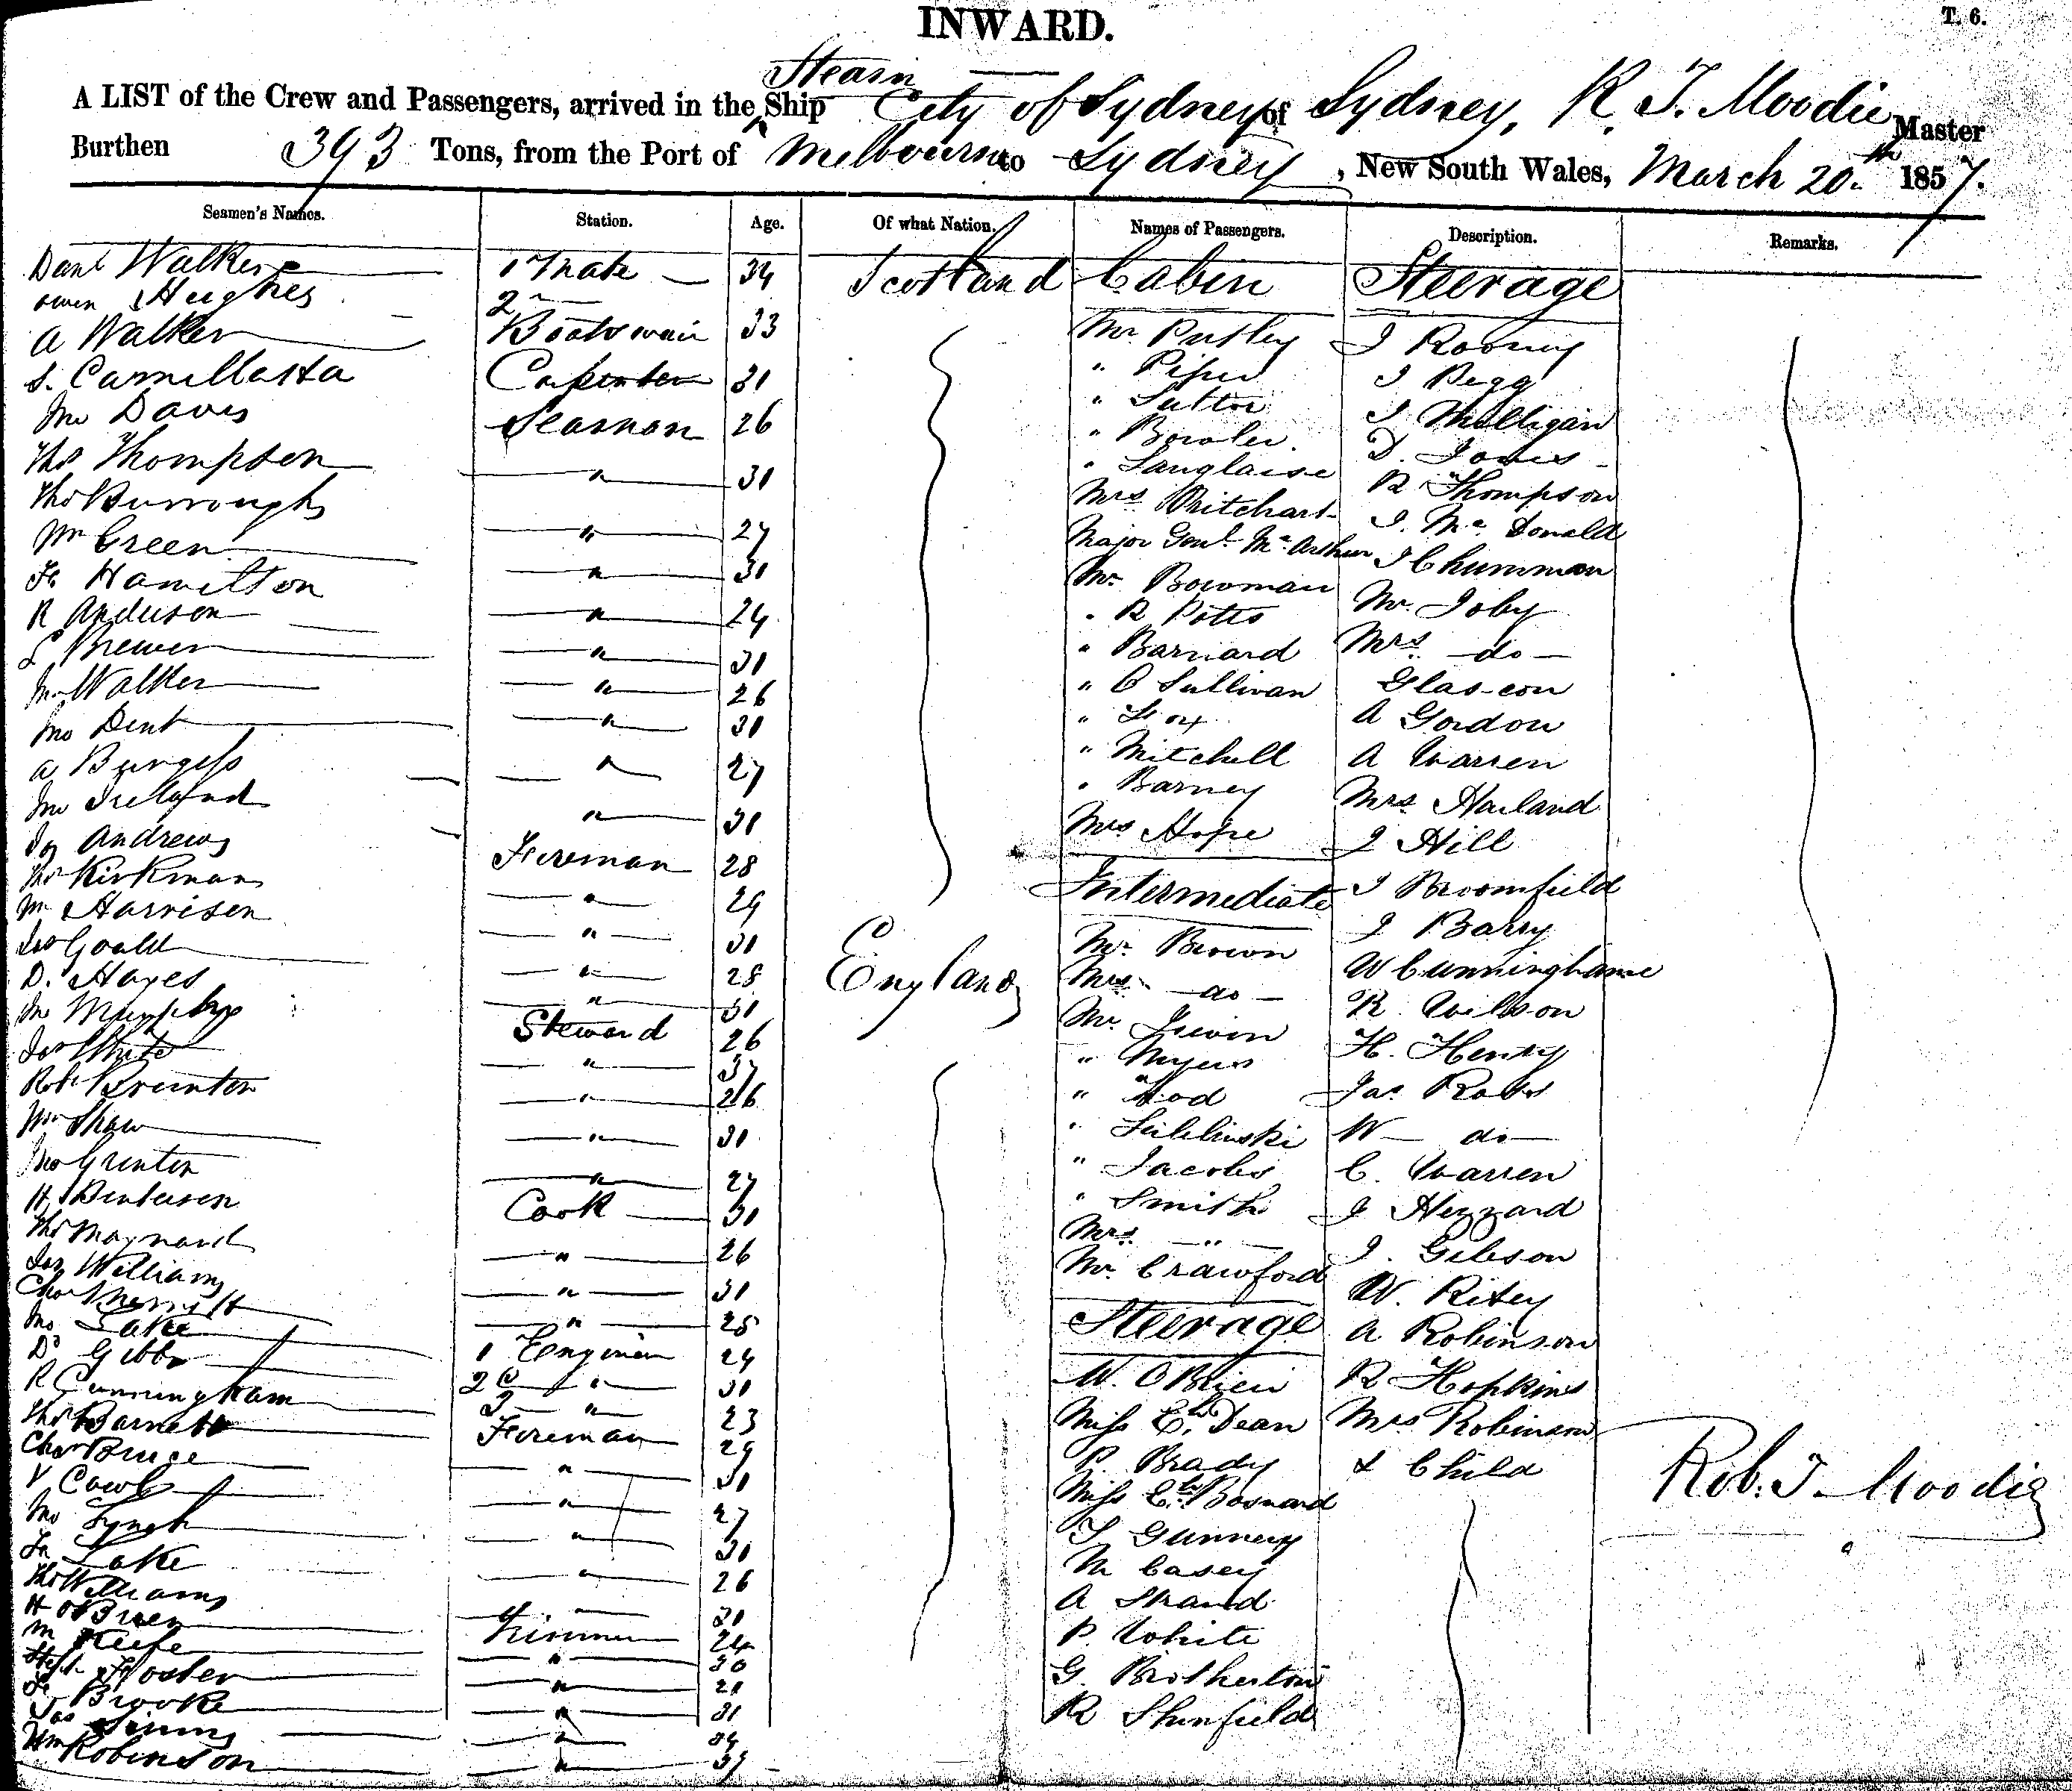 INWARD.
T. 6.
Steam
A LIST of the Crew and Passengers, arrived in the Ship City of Sydney of Sydney, R. T. Moodie Master
Burthen 393 Tons, from the Port of Melbourne to Sydney, New South Wales, March 20th 1857.
Seamen's Names. Station. Age. Of what Nation. Names of Passengers. Description. Remarks.
Danl Walker 1 Mate 34 Scotland Cabin Steerage
Owen Hughes 2 "
A Walker Boatswain 33 Mr Putley J Rooney
S. Camillasta Carpenter 31 " Piper J Pegg
Jno Davis Seaman 26 " Suttor J Mulligan
" Bowler D. Jones
Thos Thompson " 31 " Langlaise R Thompson
Thos Burroughs " 27 Mrs Pritchart J. Mc Donald
Wm Green " 31 Major Genl Mc Arthur J Chumman
Fs Hamilton " 24 Mr Bowman Mr Joby
R Anderson " 31 " R Potts Mrs do
L Brewer " 26 " Barnard Glascow
Jno Walker " 31 " O Sullivan A Gordon
Jno Dent " 27 " Fox A Warren
A Burgess " 31 " Mitchell Mrs Harland
Jno Ireland Fireman 28 " Barney J Hill
Jas Andrews " 29 Mrs Hope J Broomfield
Thos Kirkman " 31 Intermediate J Barry
Wm Harrison " 28 Mr Brown W Cunninghame
Jas Gould " 31 England Mrs do R Wilson
D. Hayes Steward 26 Mr Irwin H. Henry
Jno Murphy " 37 " Myers Jas Ross
Jas White " 26 " Tod W do
Robt Brunton " 31 C. Warren
Wm Shaw " 27 " Jacobs J Hezzard
Jno Grunton Cook 31 " Smith J. Gibson
H. " 26 Mrs " W. Riley
Thos Maynard " 31 Mr Crawford A Robinson
Jas Williams " 28 Steerage R Hopkins
Chas Merritt 1 Engineer 24 W. OBrien Mrs Robinson
Jno Lake 2 " 31 Miss E. Dean & Child
Dd Gibb 3 " 23 P. Brady
R Cunningham Fireman 29 Miss E. Bosnard
Thos Barnett " 31 T Gunnery
Chas Bruce " 27 M Casey
V Cowl " 31 A Strand
Jno Lynch " 26 P. White
Fs Lake " 31 G. Brotherton
Thos Williams Trimmer 24 R Shinfield
H OBrien " 30
M Keefe " 21
Steph Foster " 31
Fs Brooke " 34
Jas Sinns " 39
Wm Robinson
Rob. T. Moodie